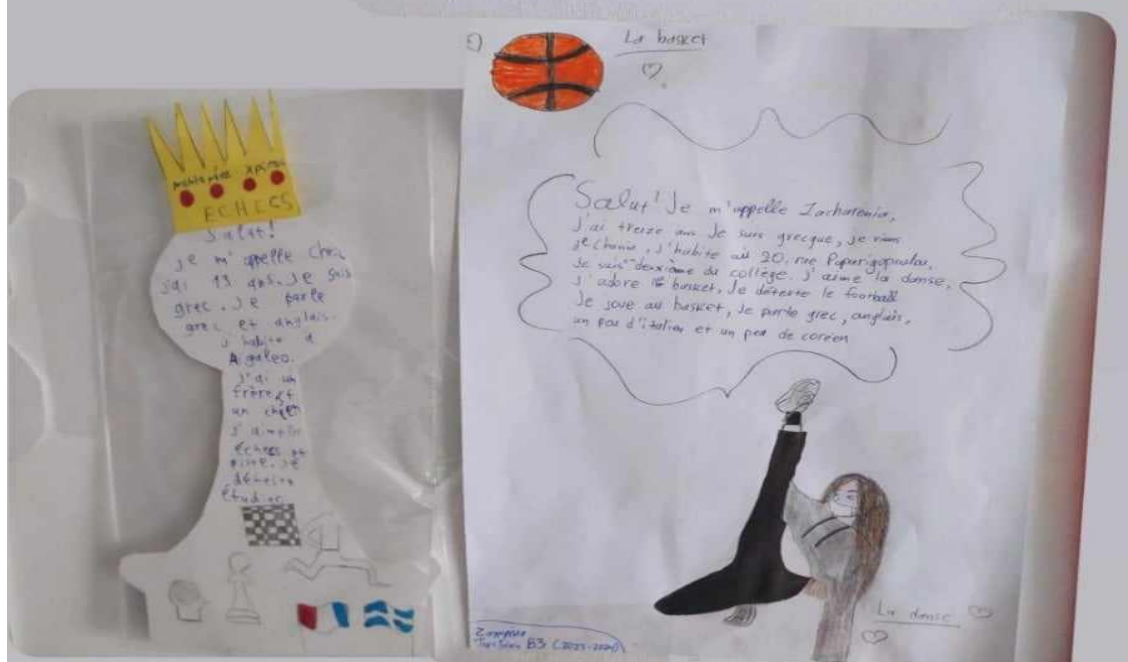 ECHECS
Salut!
Je m'appelle Chris
j'ai 13 ans. Je suis
grec. Je parle
grec et anglais.
J'habite à
Aigaleo.
J'ai un
frère et
un chien
J'aime les
échecs et
piste. Je
déteste
étudier
La basket
Salut! Je m'appelle Zacharenia,
j'ai treize ans Je suis grecque, je viens
de Chania, j'habite au 20, rue Paparigopoulou,
Je suis deuxième du collège. j'aime la danse,
j'adore le basket, Je déteste le football
Je joue au basket, Je parle grec, anglais,
un peu d'italien et un peu de coréen
La danse
B3 (2023-2024)